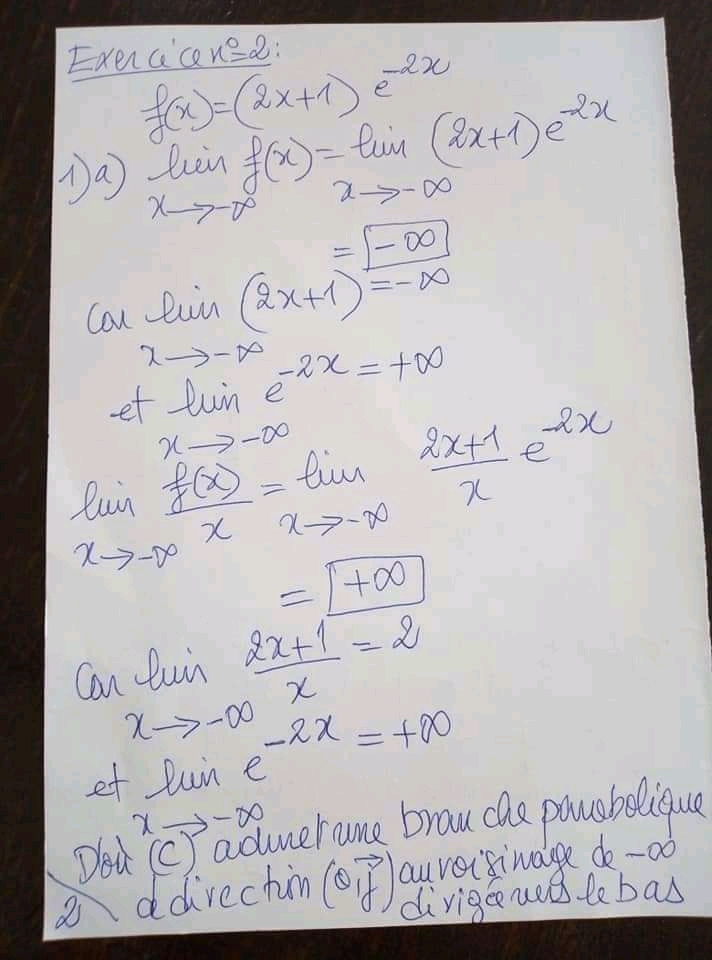 Exercice n°=2:
f(x)=(2x+1) e^{-2x}
1)a) lim f(x)= lim (2x+1)e^{-2x}
x→-∞ x→-∞
= -∞
Car lim (2x+1)=-∞
x→-∞
et lim e^{-2x}=+∞
x→-∞
lim f(x)/x = lim (2x+1)/x e^{-2x}
x→-∞ x→-∞
= +∞
Car lim (2x+1)/x = 2
x→-∞
et lim e^{-2x}=+∞
x→-∞
D'où (C) admet une branche parabolique
de direction (O,j⃗) au voisinage de -∞
2 dirigée vers le bas